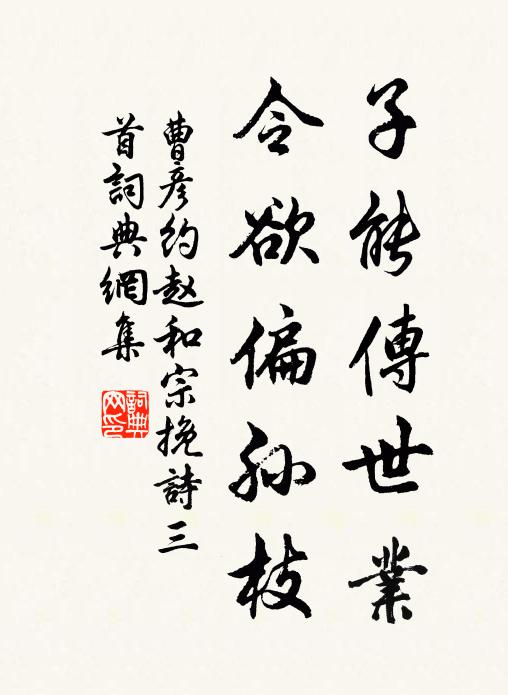 子能傳世業
令欲偏孙枝
曹彦约赵和宗挽詩三
首詞典網集
詞典网印